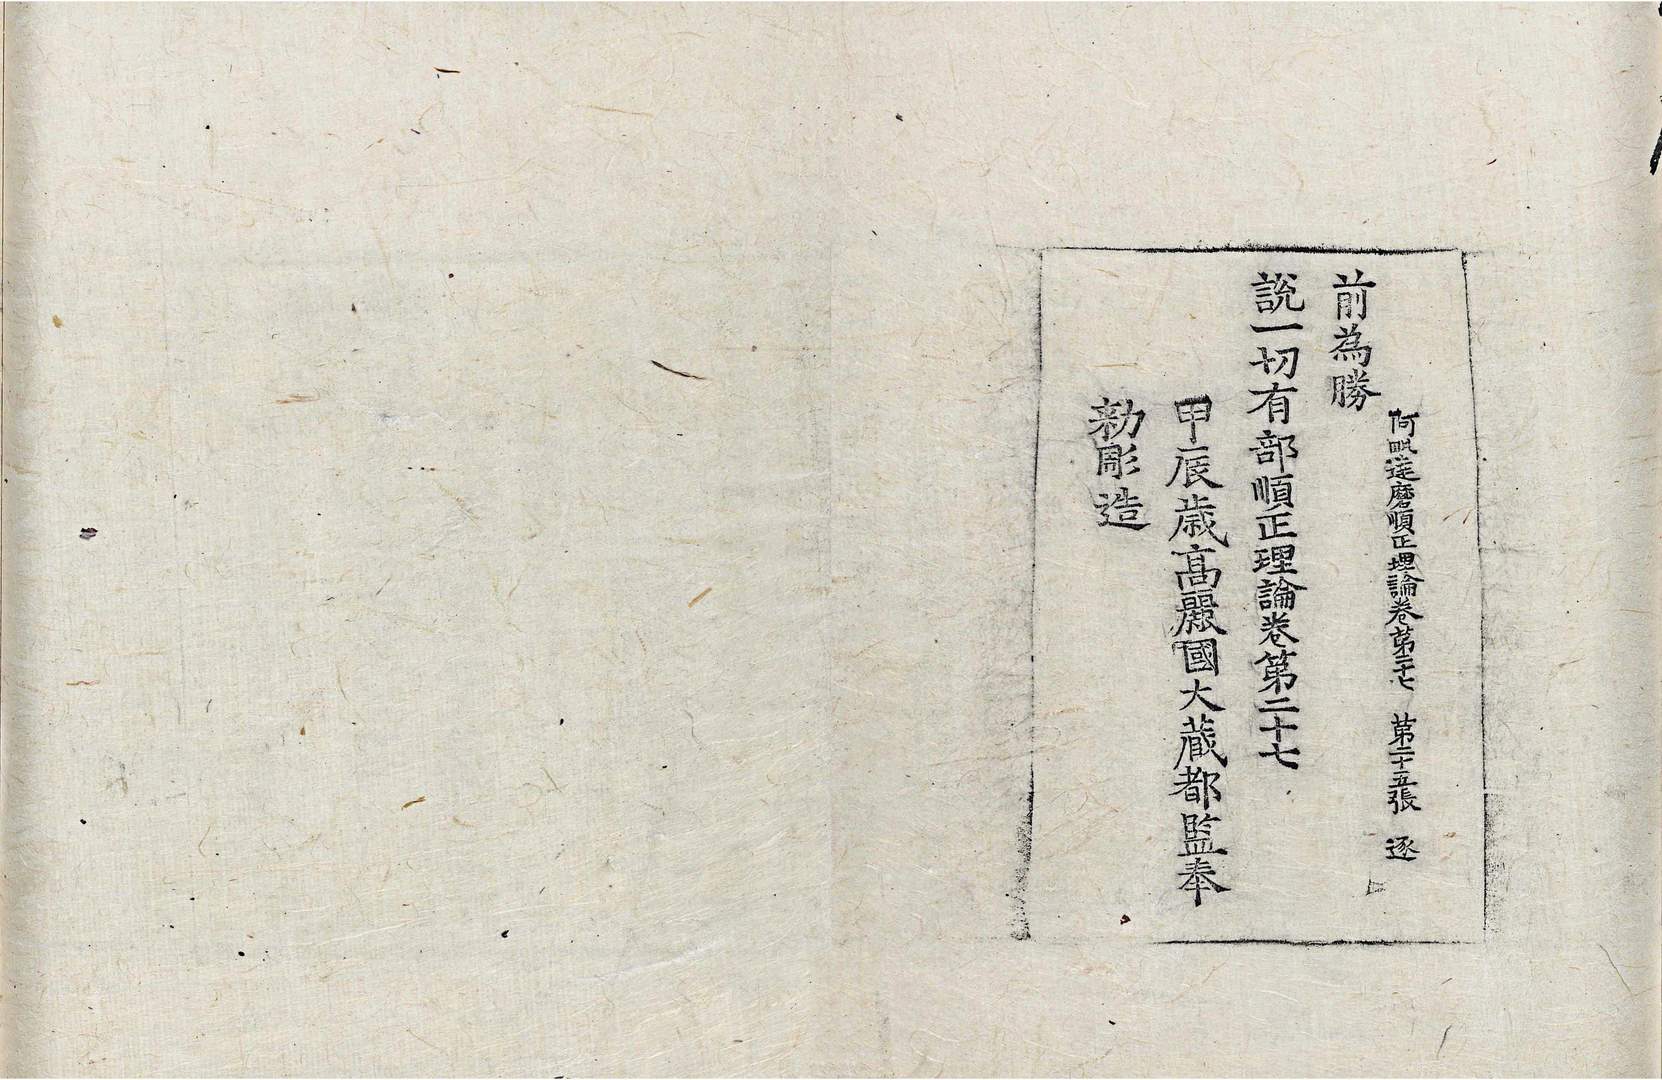 阿毗達磨順正理論卷第二十七 第二十五張 逐
前為勝
說一切有部順正理論卷第二十七
甲辰歲高麗國大藏都監奉
勑彫造